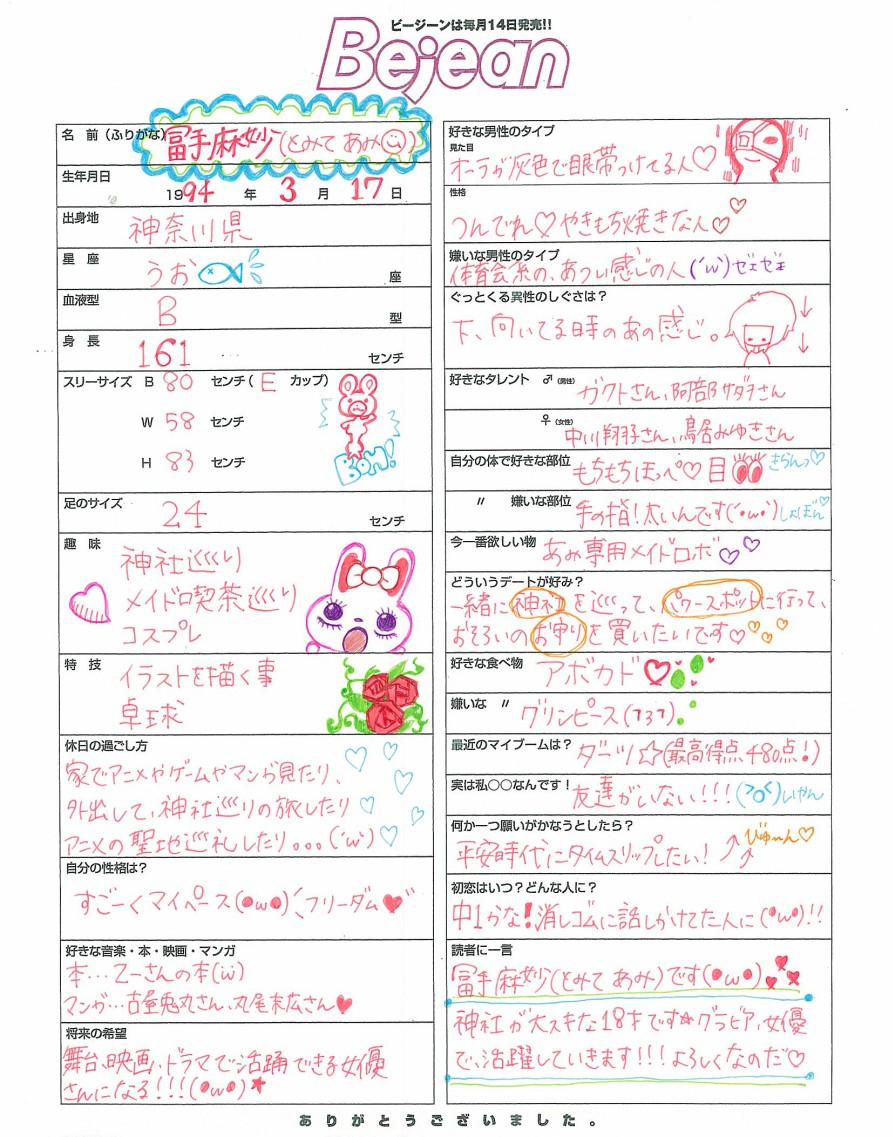 ビージーンは毎月14日発売!!
Bejean
名 前(ふりがな) 冨手麻妙(とみて あみ)
生年月日
1994 年 3 月 17 日
出身地 神奈川県
星 座 うお 座
血液型 B 型
身 長 161 センチ
スリーサイズ B 80 センチ(E カップ)
W 58 センチ
H 83 センチ
BOM!
足のサイズ 24 センチ
趣 味
神社巡り
メイド喫茶巡り
コスプレ
特 技
イラストを描く事
卓球
休日の過ごし方
家でアニメやゲームやマンガ見たり、
外出して、神社巡りの旅したり
アニメの聖地巡礼したり。。。(´ω`)
自分の性格は?
すごーくマイペース(●ω●)フリーダム♥
好きな音楽・本・映画・マンガ
本…乙一さんの本(ω)
マンガ…古屋兎丸さん、丸尾末広さん♥
将来の希望
舞台、映画、ドラマで活踊できる女優
さんになる!!!(●ω●)★
好きな男性のタイプ
見た目
オーラが灰色で眼帯つけてる人♡
性格
つんでれ♡やきもち焼きな人♡♡
嫌いな男性のタイプ
体育会系の、あつい感じの人(´ω`)ゼェゼェ
ぐっとくる異性のしぐさは?
下、向いてる時のあの感じ。
好きなタレント ♂(男性) ガクトさん、阿部サダヲさん
♀(女性) 中川翔子さん、鳥居みゆきさん
自分の体で好きな部位 もちもちほっぺ♡目 きらんっ♡
〃 嫌いな部位 手の指!太いんです(´・ω・`)しょぼん♡
今一番欲しい物 あみ専用メイドロボ♡♡
どういうデートが好み?
一緒に神社を巡って、パワースポットに行って、
おそろいのお守りを買いたいです♡♡♡♡
好きな食べ物 アボカド♡
嫌いな 〃 グリンピース
最近のマイブームは? ダーツ☆(最高得点480点!)
実は私〇〇なんです! 友達がいない!!! いやん
何か一つ願いがかなうとしたら?
びゅーん♡
平安時代にタイムスリップしたい!
初恋はいつ?どんな人に?
中1かな!消しゴムに話しかけてた人に(●ω●)!!
読者に一言
冨手麻妙(とみて あみ)です(●ω●)♥♥♥
神社が大スキな18才です☆グラビア、女優
で、活躍していきます!!!よろしくなのだ♡
ありがとうございました。